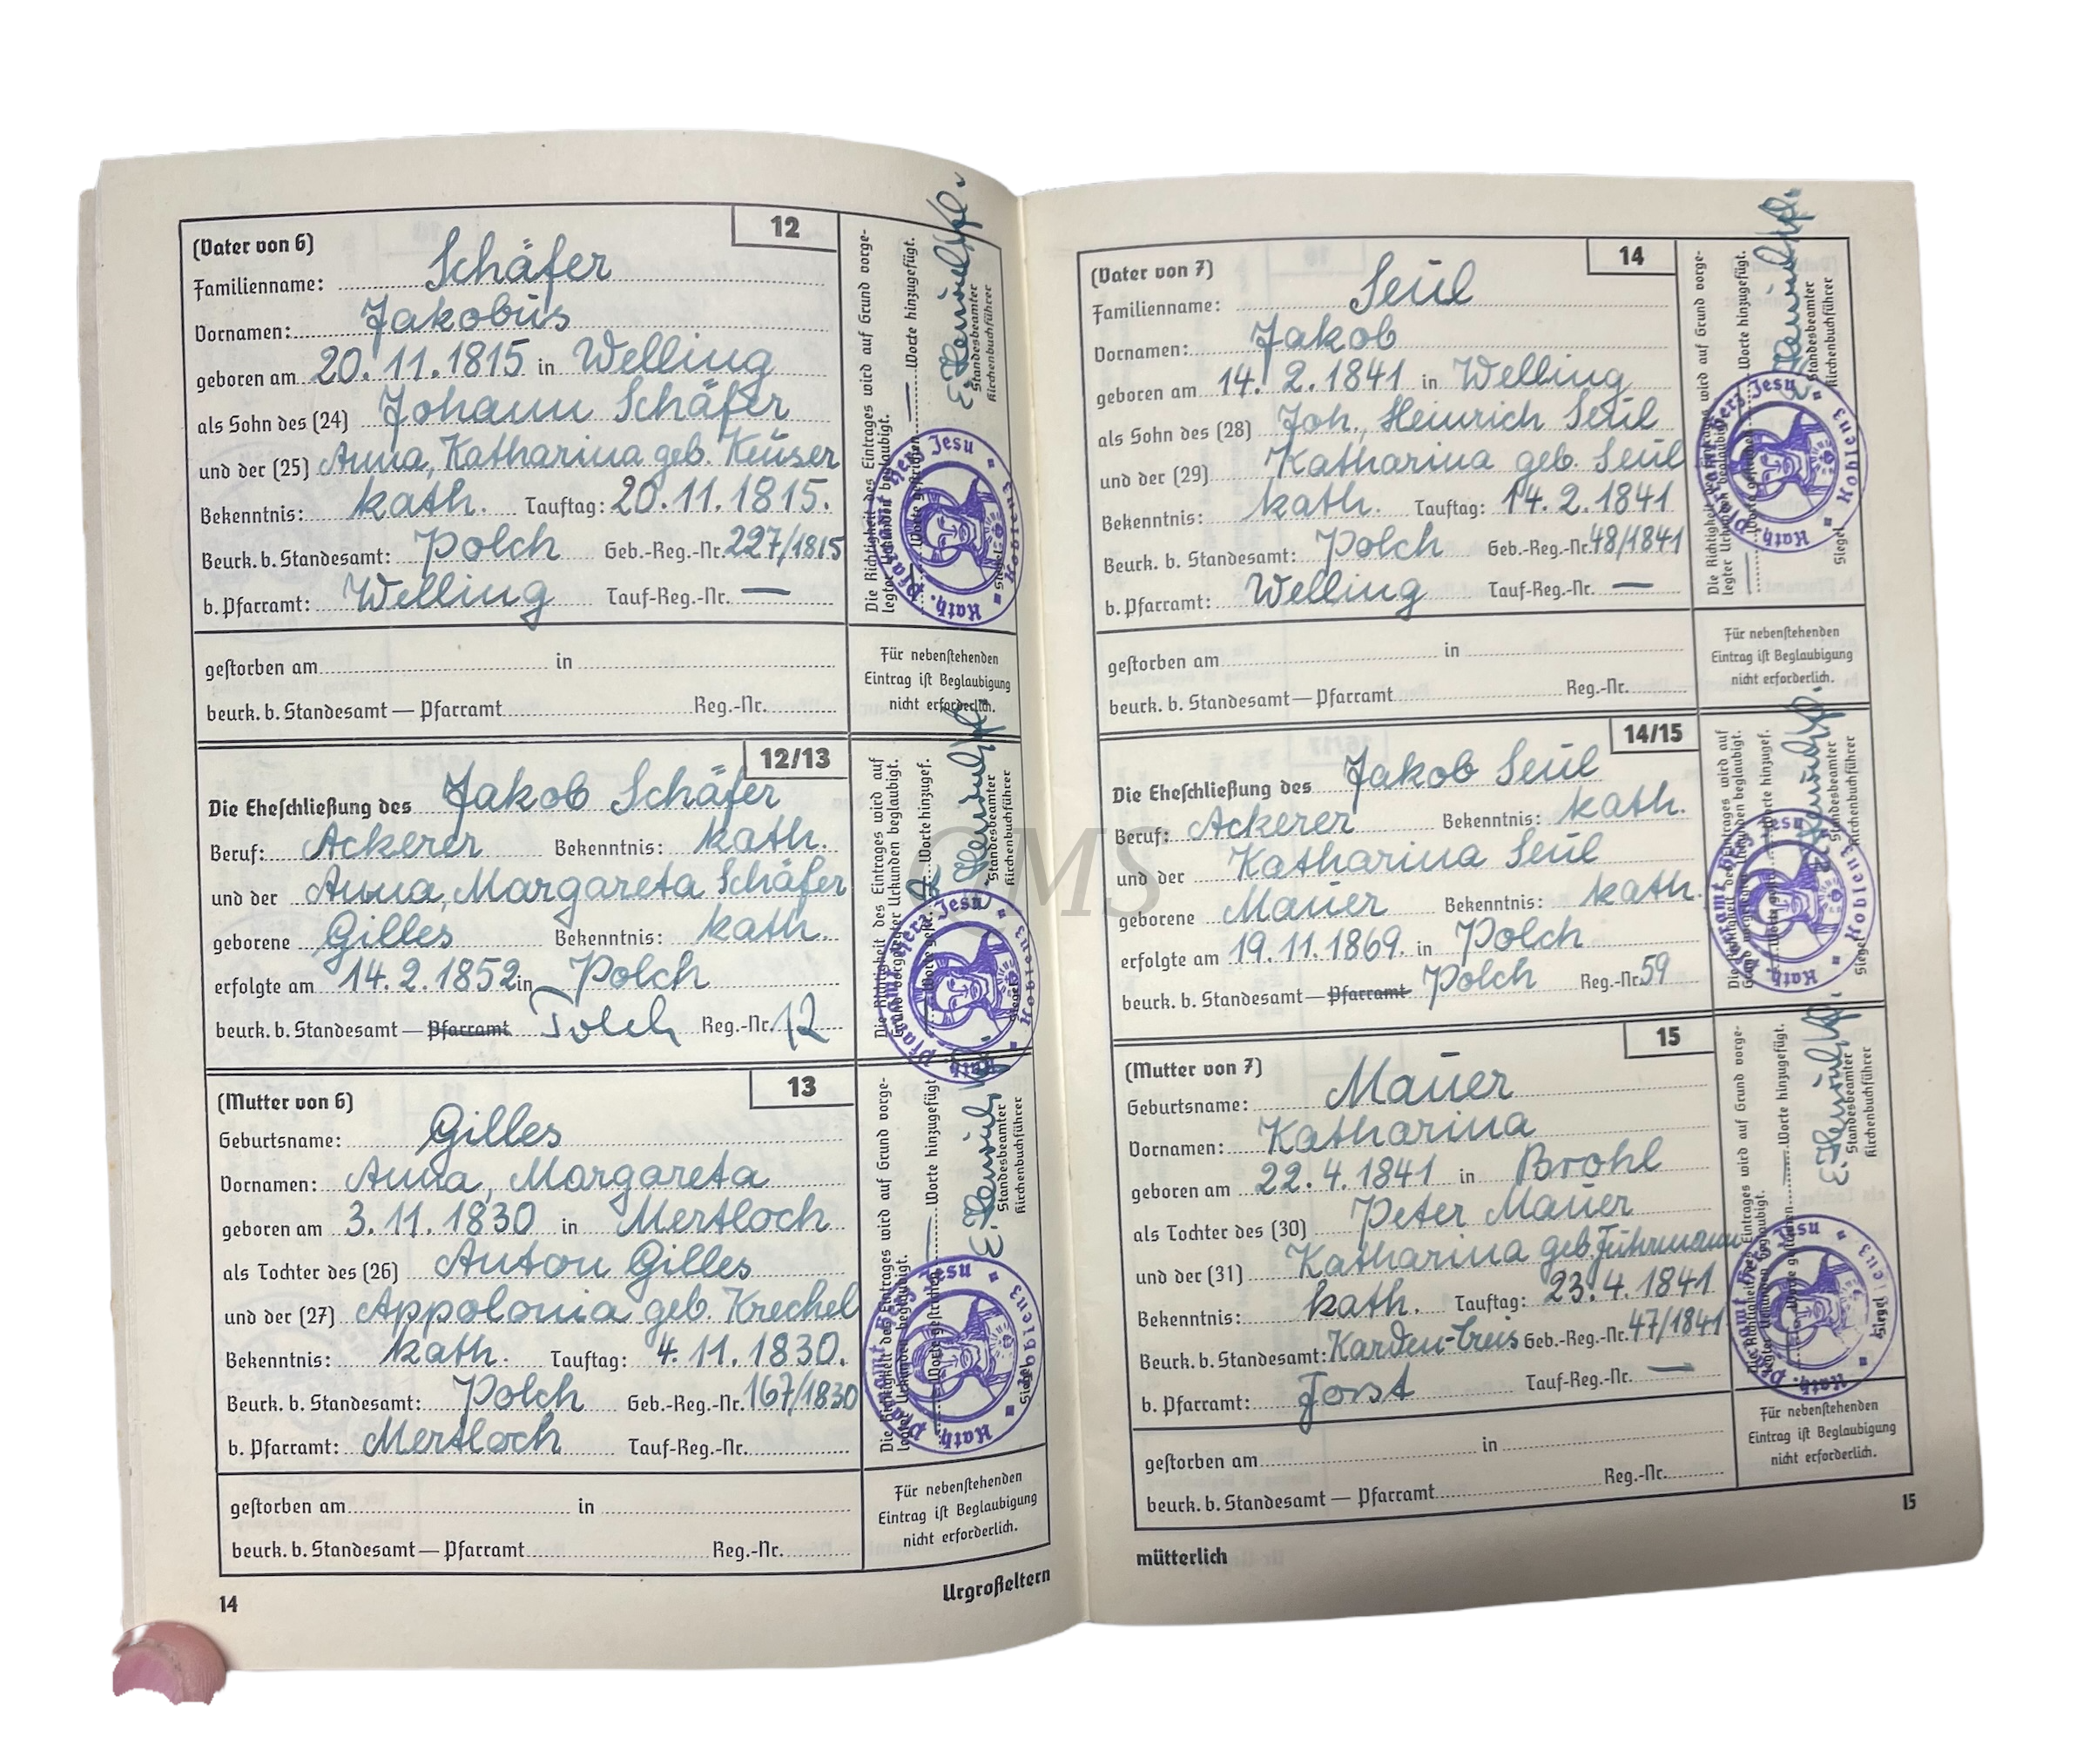 12
(Vater von 6)
Familienname: Schäfer
Vornamen: Jakobus
geboren am 20.11.1815 in Welling
als Sohn des (24) Johann Schäfer
und der (25) Anna, Katharina geb. Keuser
Bekenntnis: kath. Tauftag: 20.11.1815.
Beurk. b. Standesamt: Polch Geb.-Reg.-Nr. 227/1815
b. Pfarramt: Welling Tauf-Reg.-Nr. —
gestorben am in
beurk. b. Standesamt — Pfarramt Reg.-Nr.
Die Richtigkeit des Eintrages wird auf Grund vorge-
legter Urkunden beglaubigt.
Worte gestrichen — Worte hinzugefügt.
Standesbeamter
Kirchenbuchführer
Siegel
Kath. Pfarramt Herz Jesu Koblenz
Für nebenstehenden
Eintrag ist Beglaubigung
nicht erforderlich.
12/13
Die Eheschließung des Jakob Schäfer
Beruf: Ackerer Bekenntnis: kath.
und der Anna, Margareta Schäfer
geborene Gilles Bekenntnis: kath.
erfolgte am 14.2.1852 in Polch
beurk. b. Standesamt — Pfarramt Polch Reg.-Nr. 12
Die Richtigkeit des Eintrages wird auf
Grund vorgelegter Urkunden beglaubigt.
Worte gestr. Worte hinzugef.
Standesbeamter
Kirchenbuchführer
Siegel
Kath. Pfarramt Herz Jesu Koblenz
13
(Mutter von 6)
Geburtsname: Gilles
Vornamen: Anna, Margareta
geboren am 3.11.1830 in Mertloch
als Tochter des (26) Anton Gilles
und der (27) Appolonia geb. Krechel
Bekenntnis: kath. Tauftag: 4.11.1830.
Beurk. b. Standesamt: Polch Geb.-Reg.-Nr. 167/1830
b. Pfarramt: Mertloch Tauf-Reg.-Nr.
gestorben am in
beurk. b. Standesamt — Pfarramt Reg.-Nr.
Die Richtigkeit des Eintrages wird auf Grund vorge-
legter Urkunden beglaubigt.
Worte gestrichen — Worte hinzugefügt
Standesbeamter
Kirchenbuchführer
Siegel
Kath. Pfarramt Herz Jesu Koblenz
Für nebenstehenden
Eintrag ist Beglaubigung
nicht erforderlich.
14
Urgroßeltern
14
(Vater von 7)
Familienname: Seul
Vornamen: Jakob
geboren am 14.2.1841 in Welling
als Sohn des (28) Joh., Heinrich Seul
und der (29) Katharina geb. Seul
Bekenntnis: kath. Tauftag: 14.2.1841
Beurk. b. Standesamt: Polch Geb.-Reg.-Nr. 48/1841
b. Pfarramt: Welling Tauf-Reg.-Nr. —
gestorben am in
beurk. b. Standesamt — Pfarramt Reg.-Nr.
Die Richtigkeit des Eintrages wird auf Grund vorge-
legter Urkunden beglaubigt.
Worte gestrichen Worte hinzugefügt.
Standesbeamter
Kirchenbuchführer
Siegel
Kath. Pfarramt Herz Jesu Koblenz
Für nebenstehenden
Eintrag ist Beglaubigung
nicht erforderlich.
14/15
Die Eheschließung des Jakob Seul
Beruf: Ackerer Bekenntnis: kath.
und der Katharina Seul
geborene Mauer Bekenntnis: kath.
erfolgte am 19.11.1869. in Polch
beurk. b. Standesamt — Pfarramt Polch Reg.-Nr. 59
Die Richtigkeit des Eintrages wird auf
Grund vorgelegter Urkunden beglaubigt.
Worte gestr. Worte hinzugef.
Standesbeamter
Kirchenbuchführer
Siegel
Kath. Pfarramt Herz Jesu Koblenz
15
(Mutter von 7)
Geburtsname: Mauer
Vornamen: Katharina
geboren am 22.4.1841 in Brohl
als Tochter des (30) Peter Mauer
und der (31) Katharina geb. Führmann
Bekenntnis: kath. Tauftag: 23.4.1841
Beurk. b. Standesamt: Karden-Treis Geb.-Reg.-Nr. 47/1841
b. Pfarramt: Forst Tauf-Reg.-Nr. —
gestorben am in
beurk. b. Standesamt — Pfarramt Reg.-Nr.
Die Richtigkeit des Eintrages wird auf Grund vorge-
legter Urkunden beglaubigt.
Worte gestrichen Worte hinzugefügt.
Standesbeamter
Kirchenbuchführer
Siegel
Kath. Pfarramt Herz Jesu Koblenz
Für nebenstehenden
Eintrag ist Beglaubigung
nicht erforderlich.
mütterlich
15